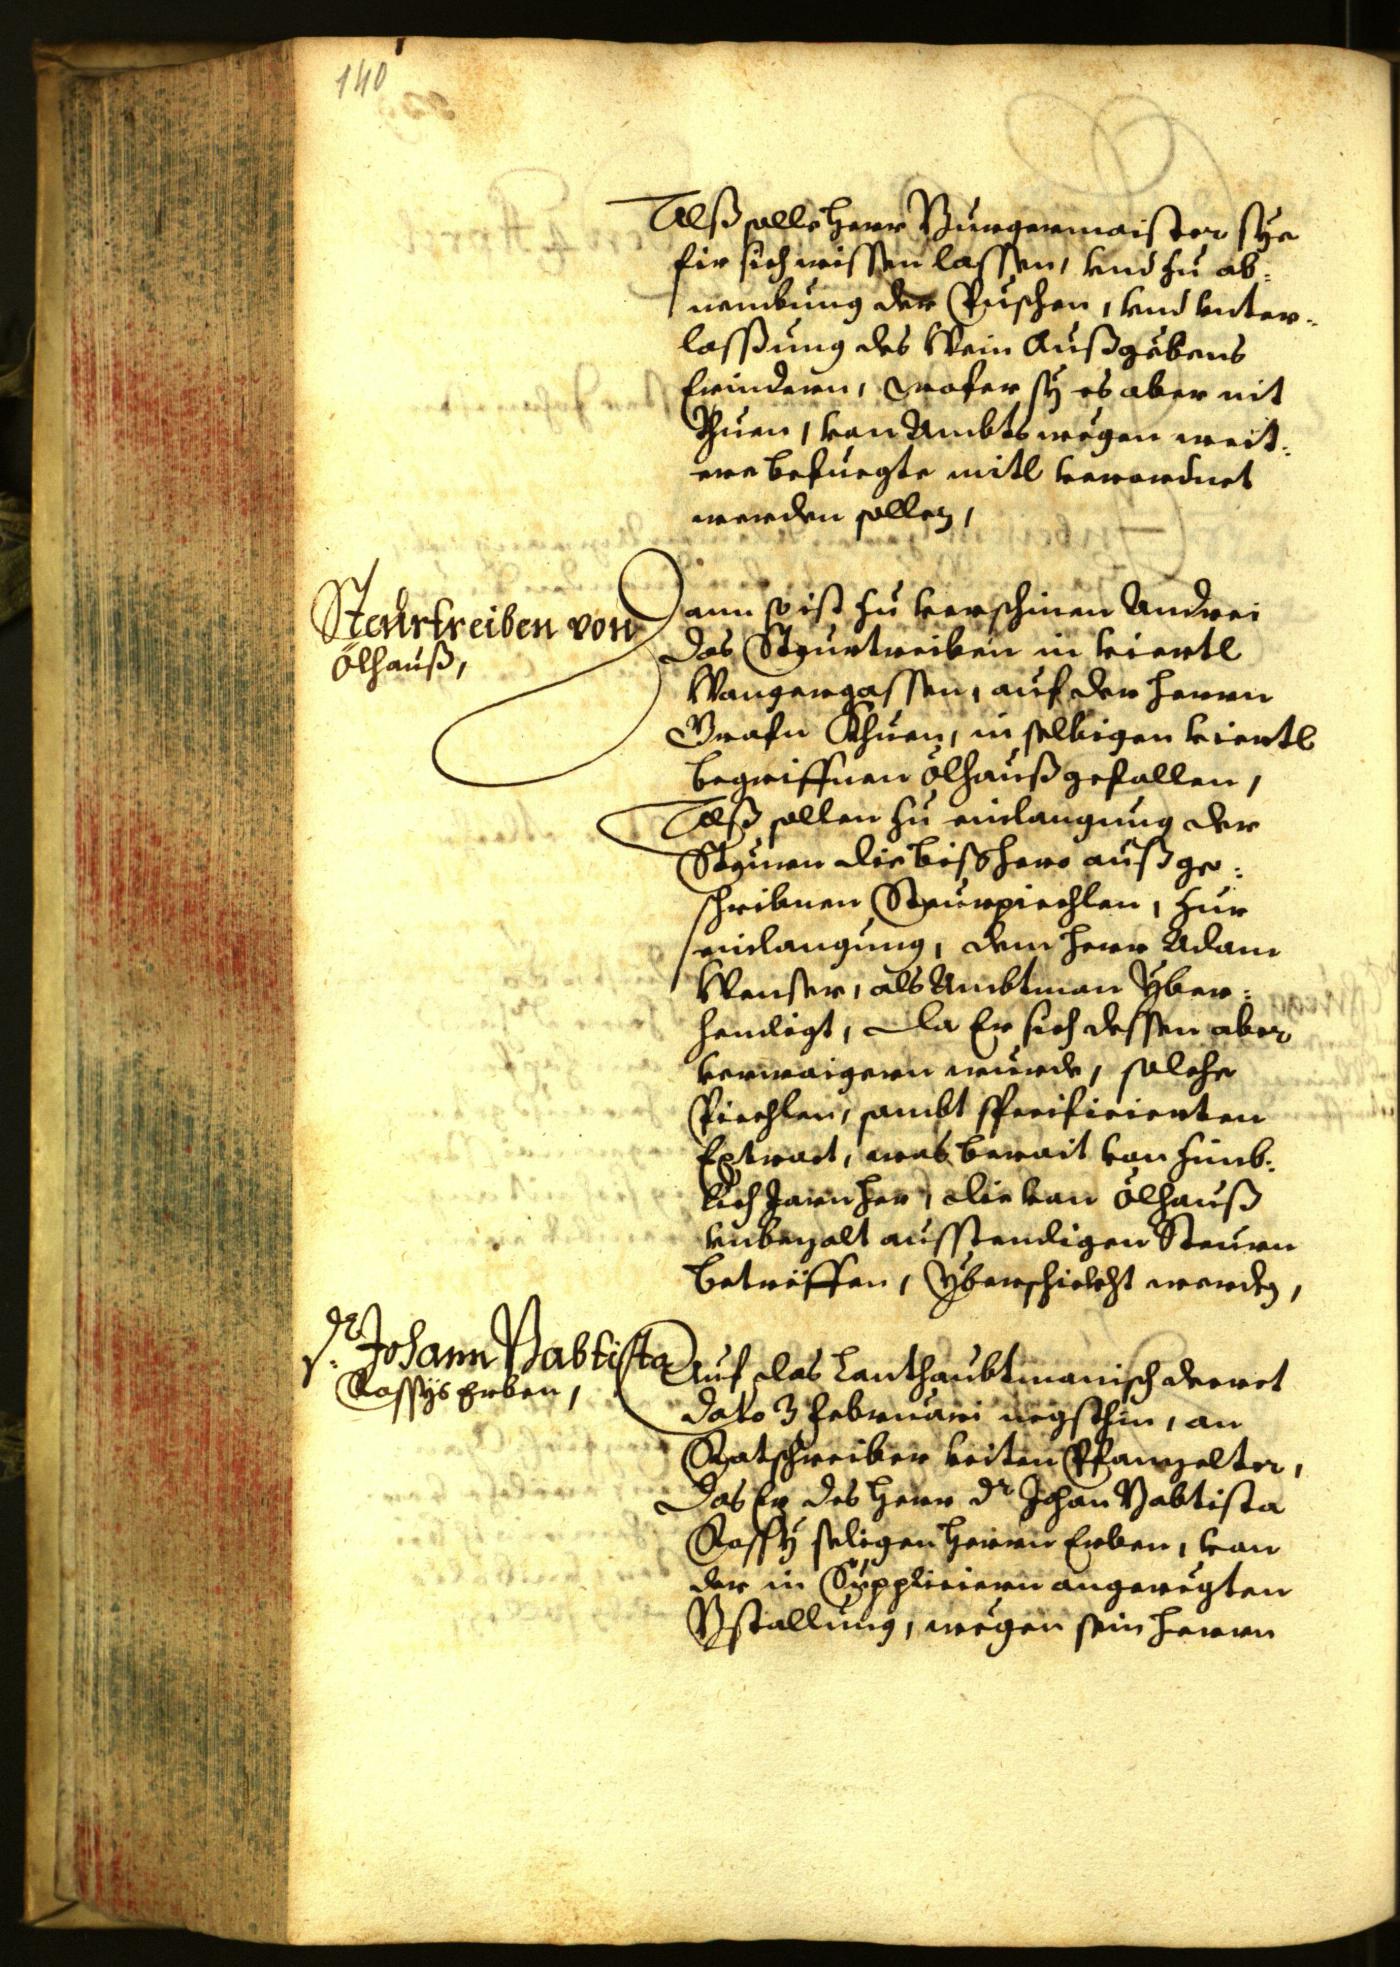 140
Alß solle Herr Burgermaister sÿe
fir sich wissen lassen, vnd zu ab:
nembung der Puschen, vnd vnter:
lassung des Wein Außgebens
Erindern, wofer sÿ es aber nit
Thuen, von Ambts wegen weit:
ere befuegte mitl verordnet
werden sollen,
Steurtreiben von
Ölhauß,
Dann so ist zu verschinen Andrei
das Steurtreiben in viertl
Wangergassen, auf der Herrn
Grafn Khuen, in selbigen viertl
begriffnen Ölhauß gefallen,
Alß sollen zu einlangung der
Steuren die bißhero außge:
schribnen Steurpiechlen, zur
einlangung, dem Herr Adam
Wenser, als Ambtman yber:
hendigt, da Er sich dessen aber
verwaigern wurde, solche
Piechlen, sambt specificierten
Extract, was berait von
Jarn her, die von Ölhauß
vnbezalt ausstendigen Steurn
betreffen, yberschickht werden,
Dr Johann Babtista
Rossÿs Erben,
Auf das Lanthaubtmanisch decret
dato 3 Februari negsthin, an
Statschreiber Veiten Pfanzelter,
das Er des Herr Dr Johan Babtista
Rossÿ seligen Herrn Erben, von
der in Suppliciern angeregten
Bstallung, wegen sein Herrn